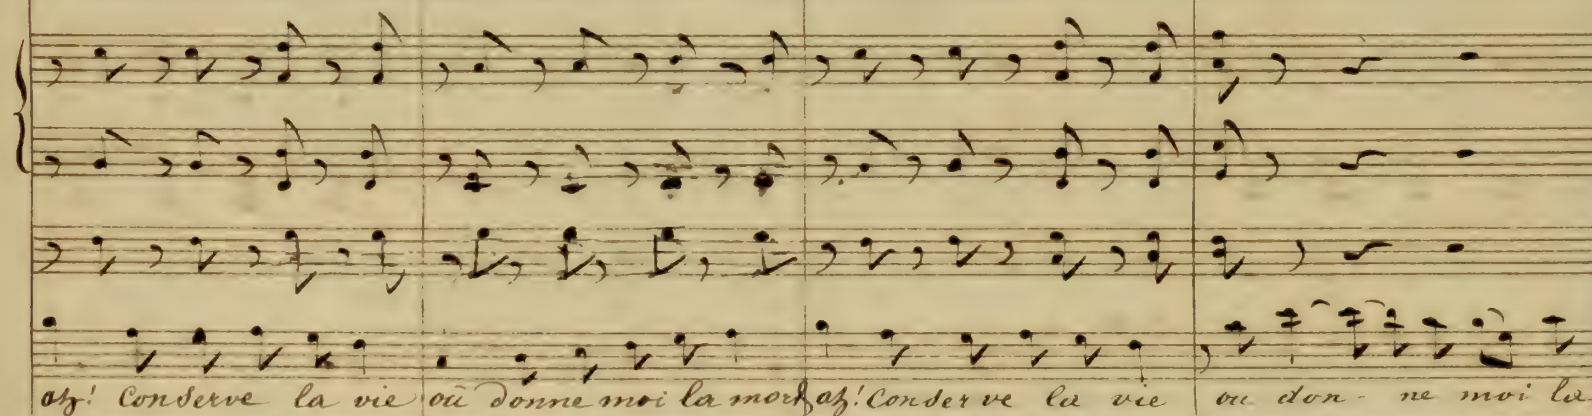 ah! Conserve la vie où donne moi la mort ah! Conserve la vie ou don - ne moi la